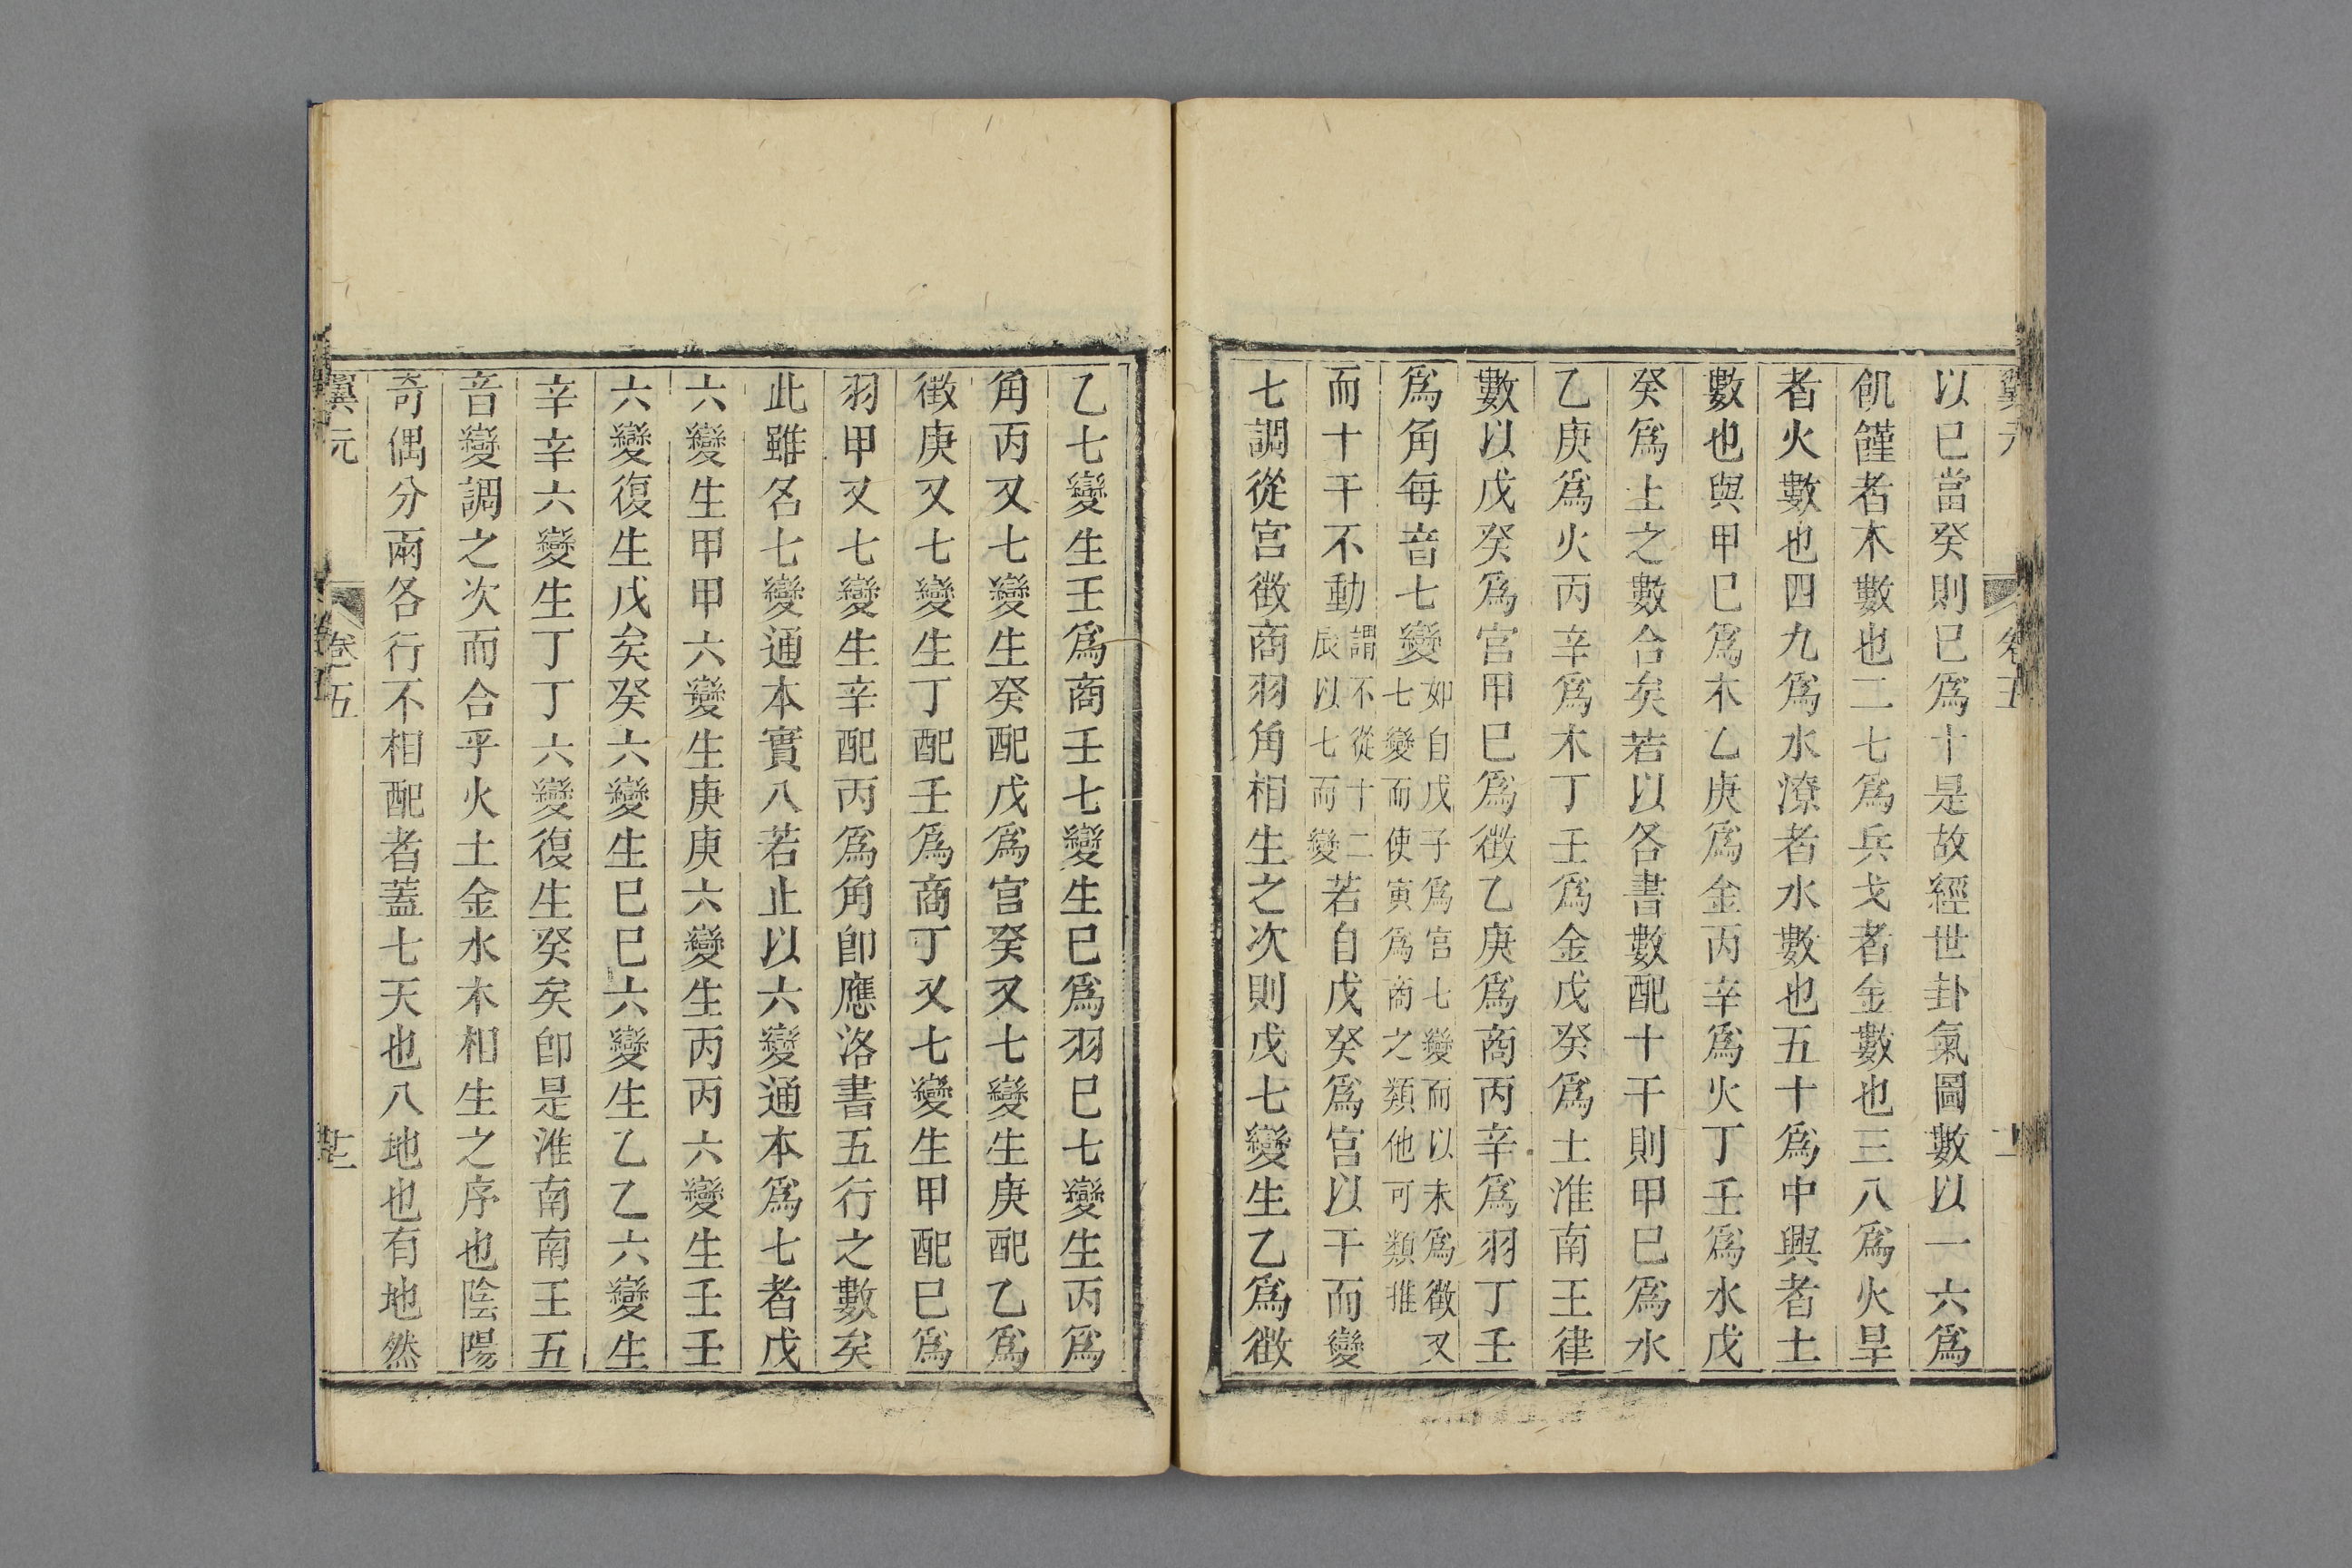 翼元
卷五
以巳當癸則巳爲十是故經世卦氣圖數以一六爲
飢饉者木數也二七爲兵戈者金數也三八爲火旱
者火數也四九爲水潦者水數也五十爲中興者土
數也與甲巳爲木乙庚爲金丙辛爲火丁壬爲水戊
癸爲土之數合矣若以各書數配十干則甲巳爲水
乙庚爲火丙辛爲木丁壬爲金戊癸爲土淮南王律
數以戊癸爲宮甲巳爲徵乙庚爲商丙辛爲羽丁壬
爲角每音七變如自戊子爲宮七變而以未爲徵又七變而使寅爲商之類他可類推
而十干不動謂不從十二辰以七而變若自戊癸爲宮以干而變
七調從宮徵商羽角相生之次則戊七變生乙爲徵
乙七變生壬爲商壬七變生巳爲羽巳七變生丙爲
角丙又七變生癸配戊爲宮癸又七變生庚配乙爲
徵庚又七變生丁配壬爲商丁又七變生甲配巳爲
羽甲又七變生辛配丙爲角卽應洛書五行之數矣
此雖名七變通本實八若止以六變通本爲七者戊
六變生甲甲六變生庚庚六變生丙丙六變生壬壬
六變復生戊矣癸六變生巳巳六變生乙乙六變生
辛辛六變生丁丁六變復生癸矣卽是淮南南王五
音變調之次而合乎火土金水木相生之序也陰陽
奇偶分兩各行不相配者蓋七天也八地也有地然
翼元
卷五